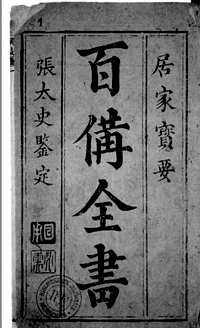 居家寶要
百備全書
張太史鑒定